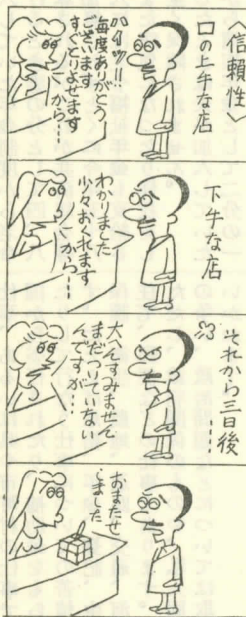 〈信頼性〉
口の上手な店
ハイッ!!
毎度ありがとう
ございます
すぐとりよせます
から…
下手な店
わかりました
少々おくれます
から…
それから三日後……
大へんすみません
まだついていない
んですが…
おまたせ
しました